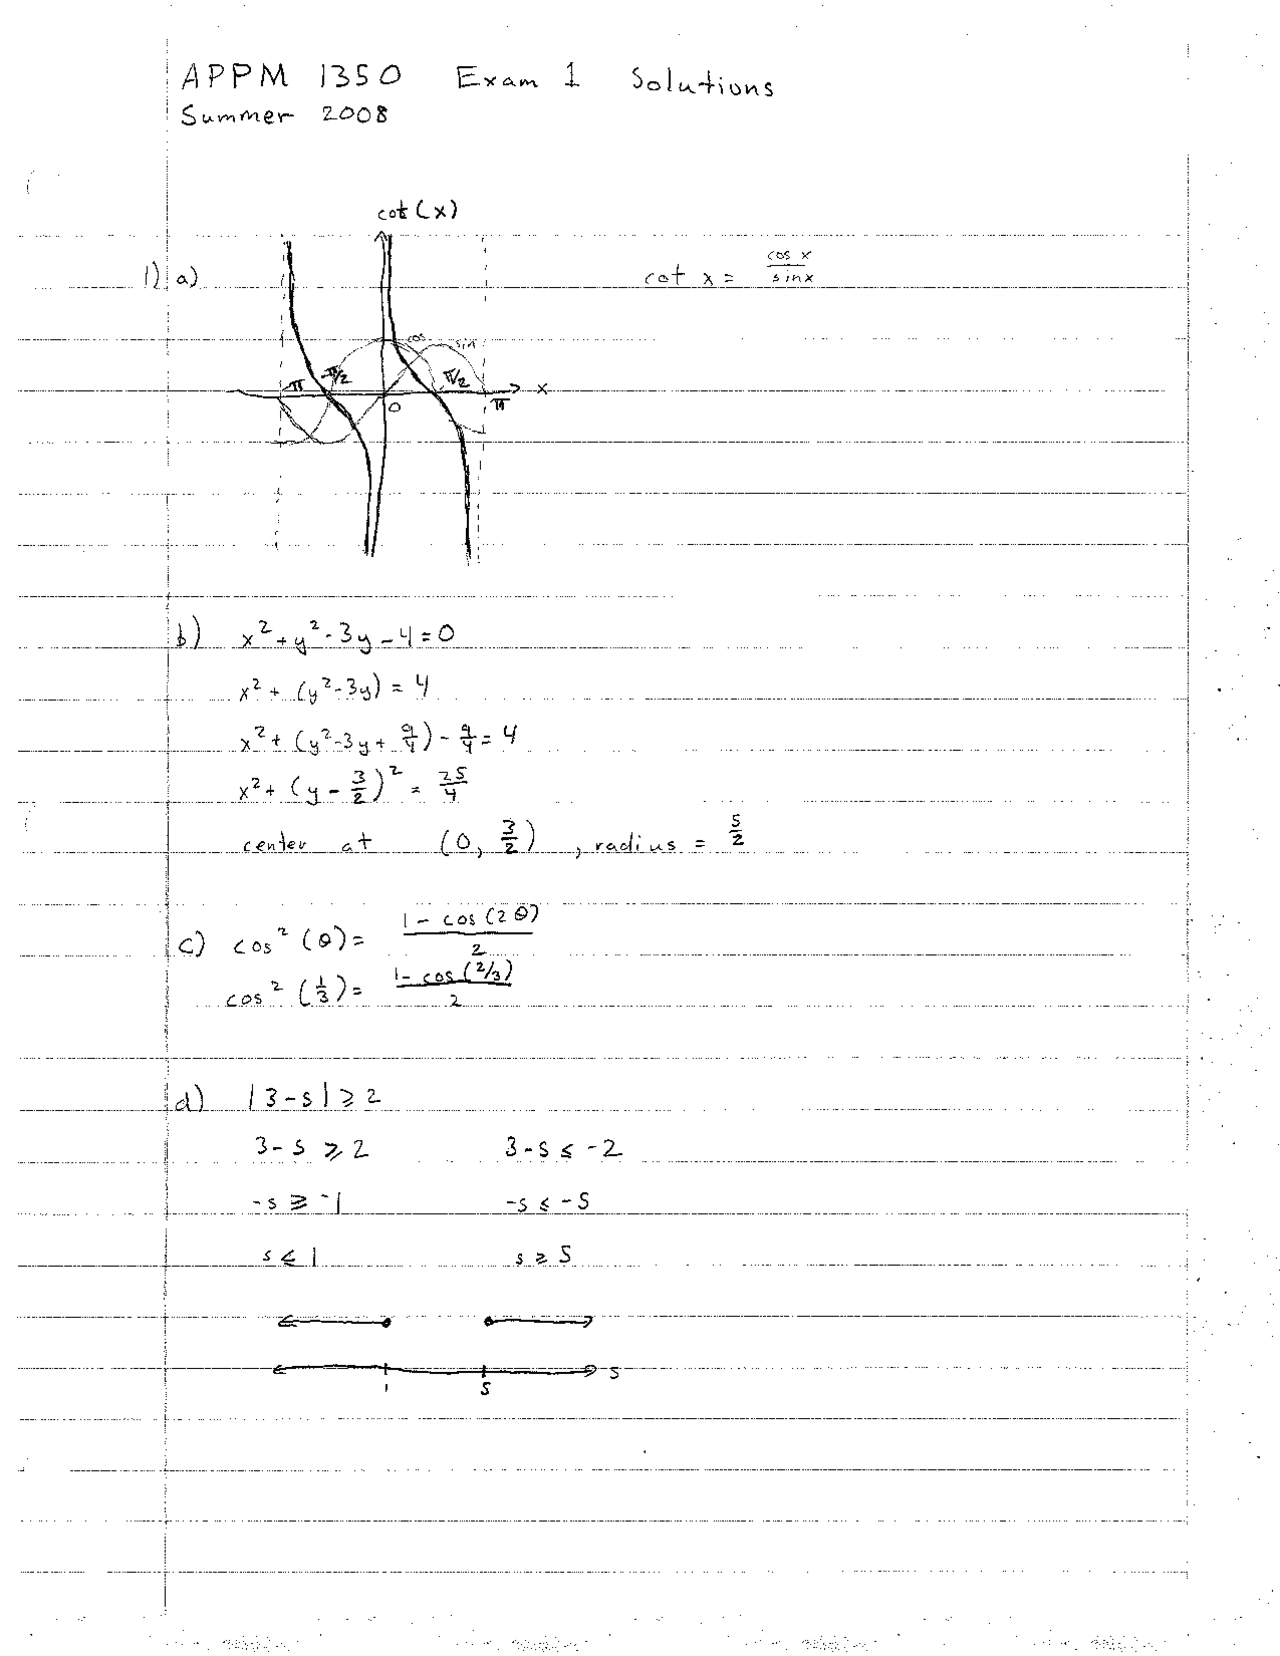 APPM 1350 Exam 1 Solutions
Summer 2008
cot(x)
1) a)
cot x = cos x / sin x
cos
sin
-π -π/2 π/2
x
0
π
b) x² + y² - 3y - 4 = 0
x² + (y² - 3y) = 4
x² + (y² - 3y + 9/4) - 9/4 = 4
x² + (y - 3/2)² = 25/4
center at (0, 3/2), radius = 5/2
c) cos²(θ) = (1 - cos(2θ))/2
cos²(1/3) = (1 - cos(2/3))/2
d) |3-s| ≥ 2
3-s ≥ 2 3-s ≤ -2
-s ≥ -1 -s ≤ -5
s ≤ 1 s ≥ 5
s
1 5